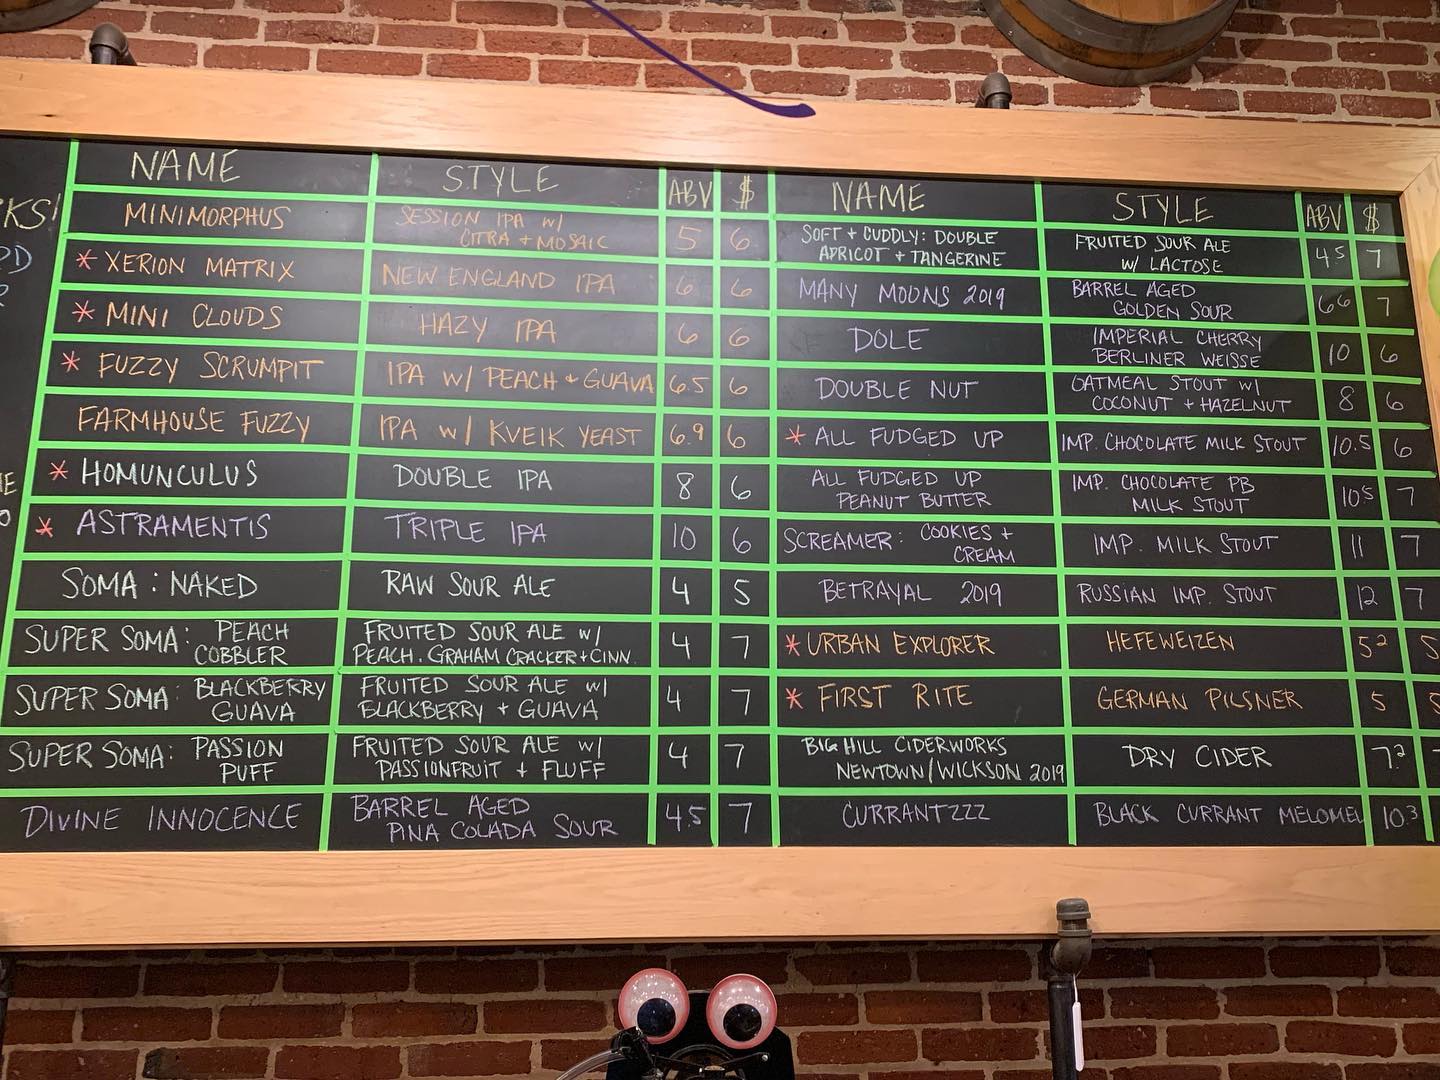 KS!
NAME STYLE ABV $
MINIMORPHUS SESSION IPA W/ 5 6
CITRA + MOSAIC
* XERION MATRIX NEW ENGLAND IPA 6 6
* MINI CLOUDS HAZY IPA 6 6
* FUZZY SCRUMPIT IPA W/ PEACH + GUAVA 6.5 6
FARMHOUSE FUZZY IPA W/ KVEIK YEAST 6.9 6
* HOMUNCULUS DOUBLE IPA 8 6
* ASTRAMENTIS TRIPLE IPA 10 6
SOMA: NAKED RAW SOUR ALE 4 5
SUPER SOMA: PEACH FRUITED SOUR ALE W/ 4 7
COBBLER PEACH. GRAHAM CRACKER + CINN.
SUPER SOMA: BLACKBERRY FRUITED SOUR ALE W/ 4 7
GUAVA BLACKBERRY + GUAVA
SUPER SOMA: PASSION FRUITED SOUR ALE W/ 4 7
PUFF PASSIONFRUIT + FLUFF
DIVINE INNOCENCE BARREL AGED 4.5 7
PINA COLADA SOUR
NAME STYLE ABV $
SOFT + CUDDLY: DOUBLE FRUITED SOUR ALE 4.5 7
APRICOT + TANGERINE W/ LACTOSE
MANY MOONS 2019 BARREL AGED 6.6 7
GOLDEN SOUR
DOLE IMPERIAL CHERRY 10 6
BERLINER WEISSE
DOUBLE NUT OATMEAL STOUT W/ 8 6
COCONUT + HAZELNUT
* ALL FUDGED UP IMP. CHOCOLATE MILK STOUT 10.5 6
ALL FUDGED UP IMP. CHOCOLATE PB 10.5 7
PEANUT BUTTER MILK STOUT
SCREAMER: COOKIES + IMP. MILK STOUT 11 7
CREAM
BETRAYAL 2019 RUSSIAN IMP. STOUT 12 7
* URBAN EXPLORER HEFEWEIZEN 5.2 5
* FIRST RITE GERMAN PILSNER 5 5
BIG HILL CIDERWORKS DRY CIDER 7.2 7
NEWTOWN/WICKSON 2019
CURRANTZZZ BLACK CURRANT MELOMEL 10.3